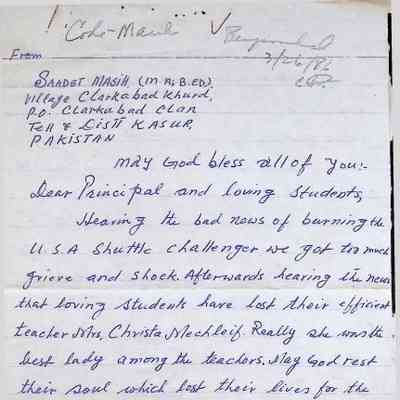 Responded
2/26/86
From
SAADET MASIH, (M.A; B.ED),
Village Clarkabad Khurd,
P.O. Clarkabad Clan
Teh & Distt KASUR,
PAKISTAN
May God bless all of You:-
Dear Principal and loving students,
Hearing the bad news of burning the
U.S.A Shuttle Challenger we got too much
grieve and shock. Afterwards hearing the news
that loving students have lost their efficient
teacher Mrs, Christa Mechleif. Really she was the
best lady among the teachers. May God rest
their soul which lost their lives for the